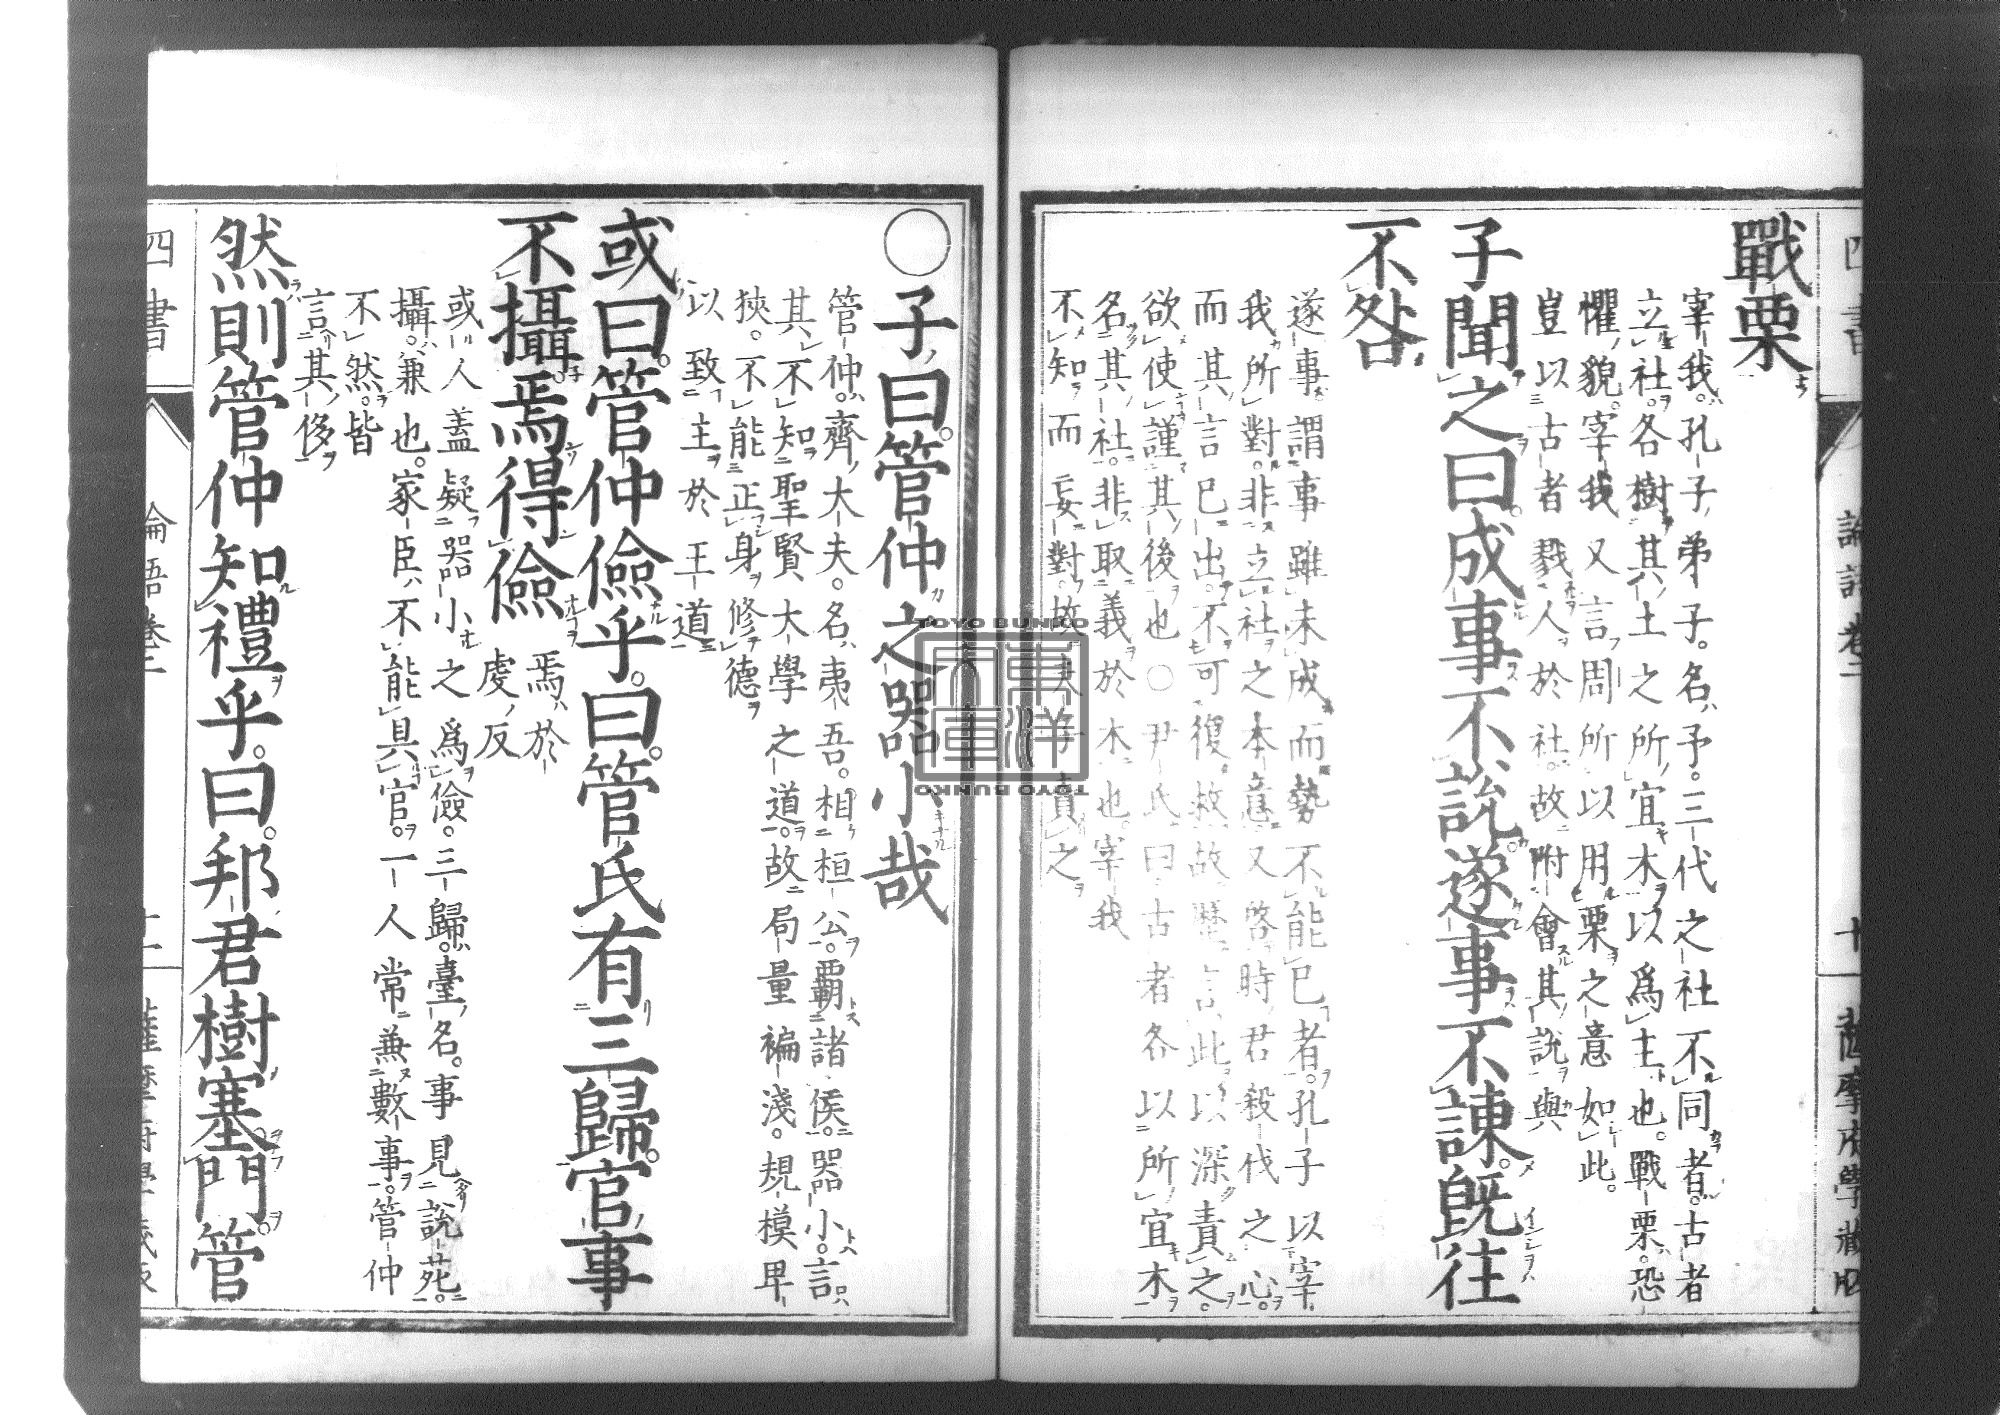 戰栗
宰我。孔子弟子。名予。三代之社不同者。古者
立社。各樹其土之所宜木以爲主也。戰栗。恐
懼貌。宰我又言周所以用栗之意如此。
豈以古者戮人於社。故附會其說與
子聞之曰。成事不說。遂事不諫。旣往
不咎
遂事謂事雖未成而勢不能已者。孔子以宰
我所對。非立社之本意。又啓時君殺伐之心。
而其言已出。不可復救。故歷言此以深責之。
欲使謹其後也〇尹氏曰古者各以所宜木
名其社。非取義於木也。宰我
不知而妄對。故夫子責之
〇子曰。管仲之器小哉
管仲。齊大夫。名夷吾。相桓公。覇諸侯。器小。言
其不知聖賢大學之道。故局量褊淺。規模卑
狹。不能正身修德
以致主於王道
或曰。管仲儉乎。曰。管氏有三歸。官事
不攝。焉得儉
焉於
虔反
或人蓋疑器小之爲儉。三歸。臺名。事見說苑。
攝。兼也。家臣不能具官。一人常兼數事。管仲
不然。皆
言其侈
然則管仲知禮乎。曰。邦君樹塞門。管
四書
論語卷二
十
薩摩府學藏版
TOYO BUNKO
東洋文庫
TOYO BUNKO